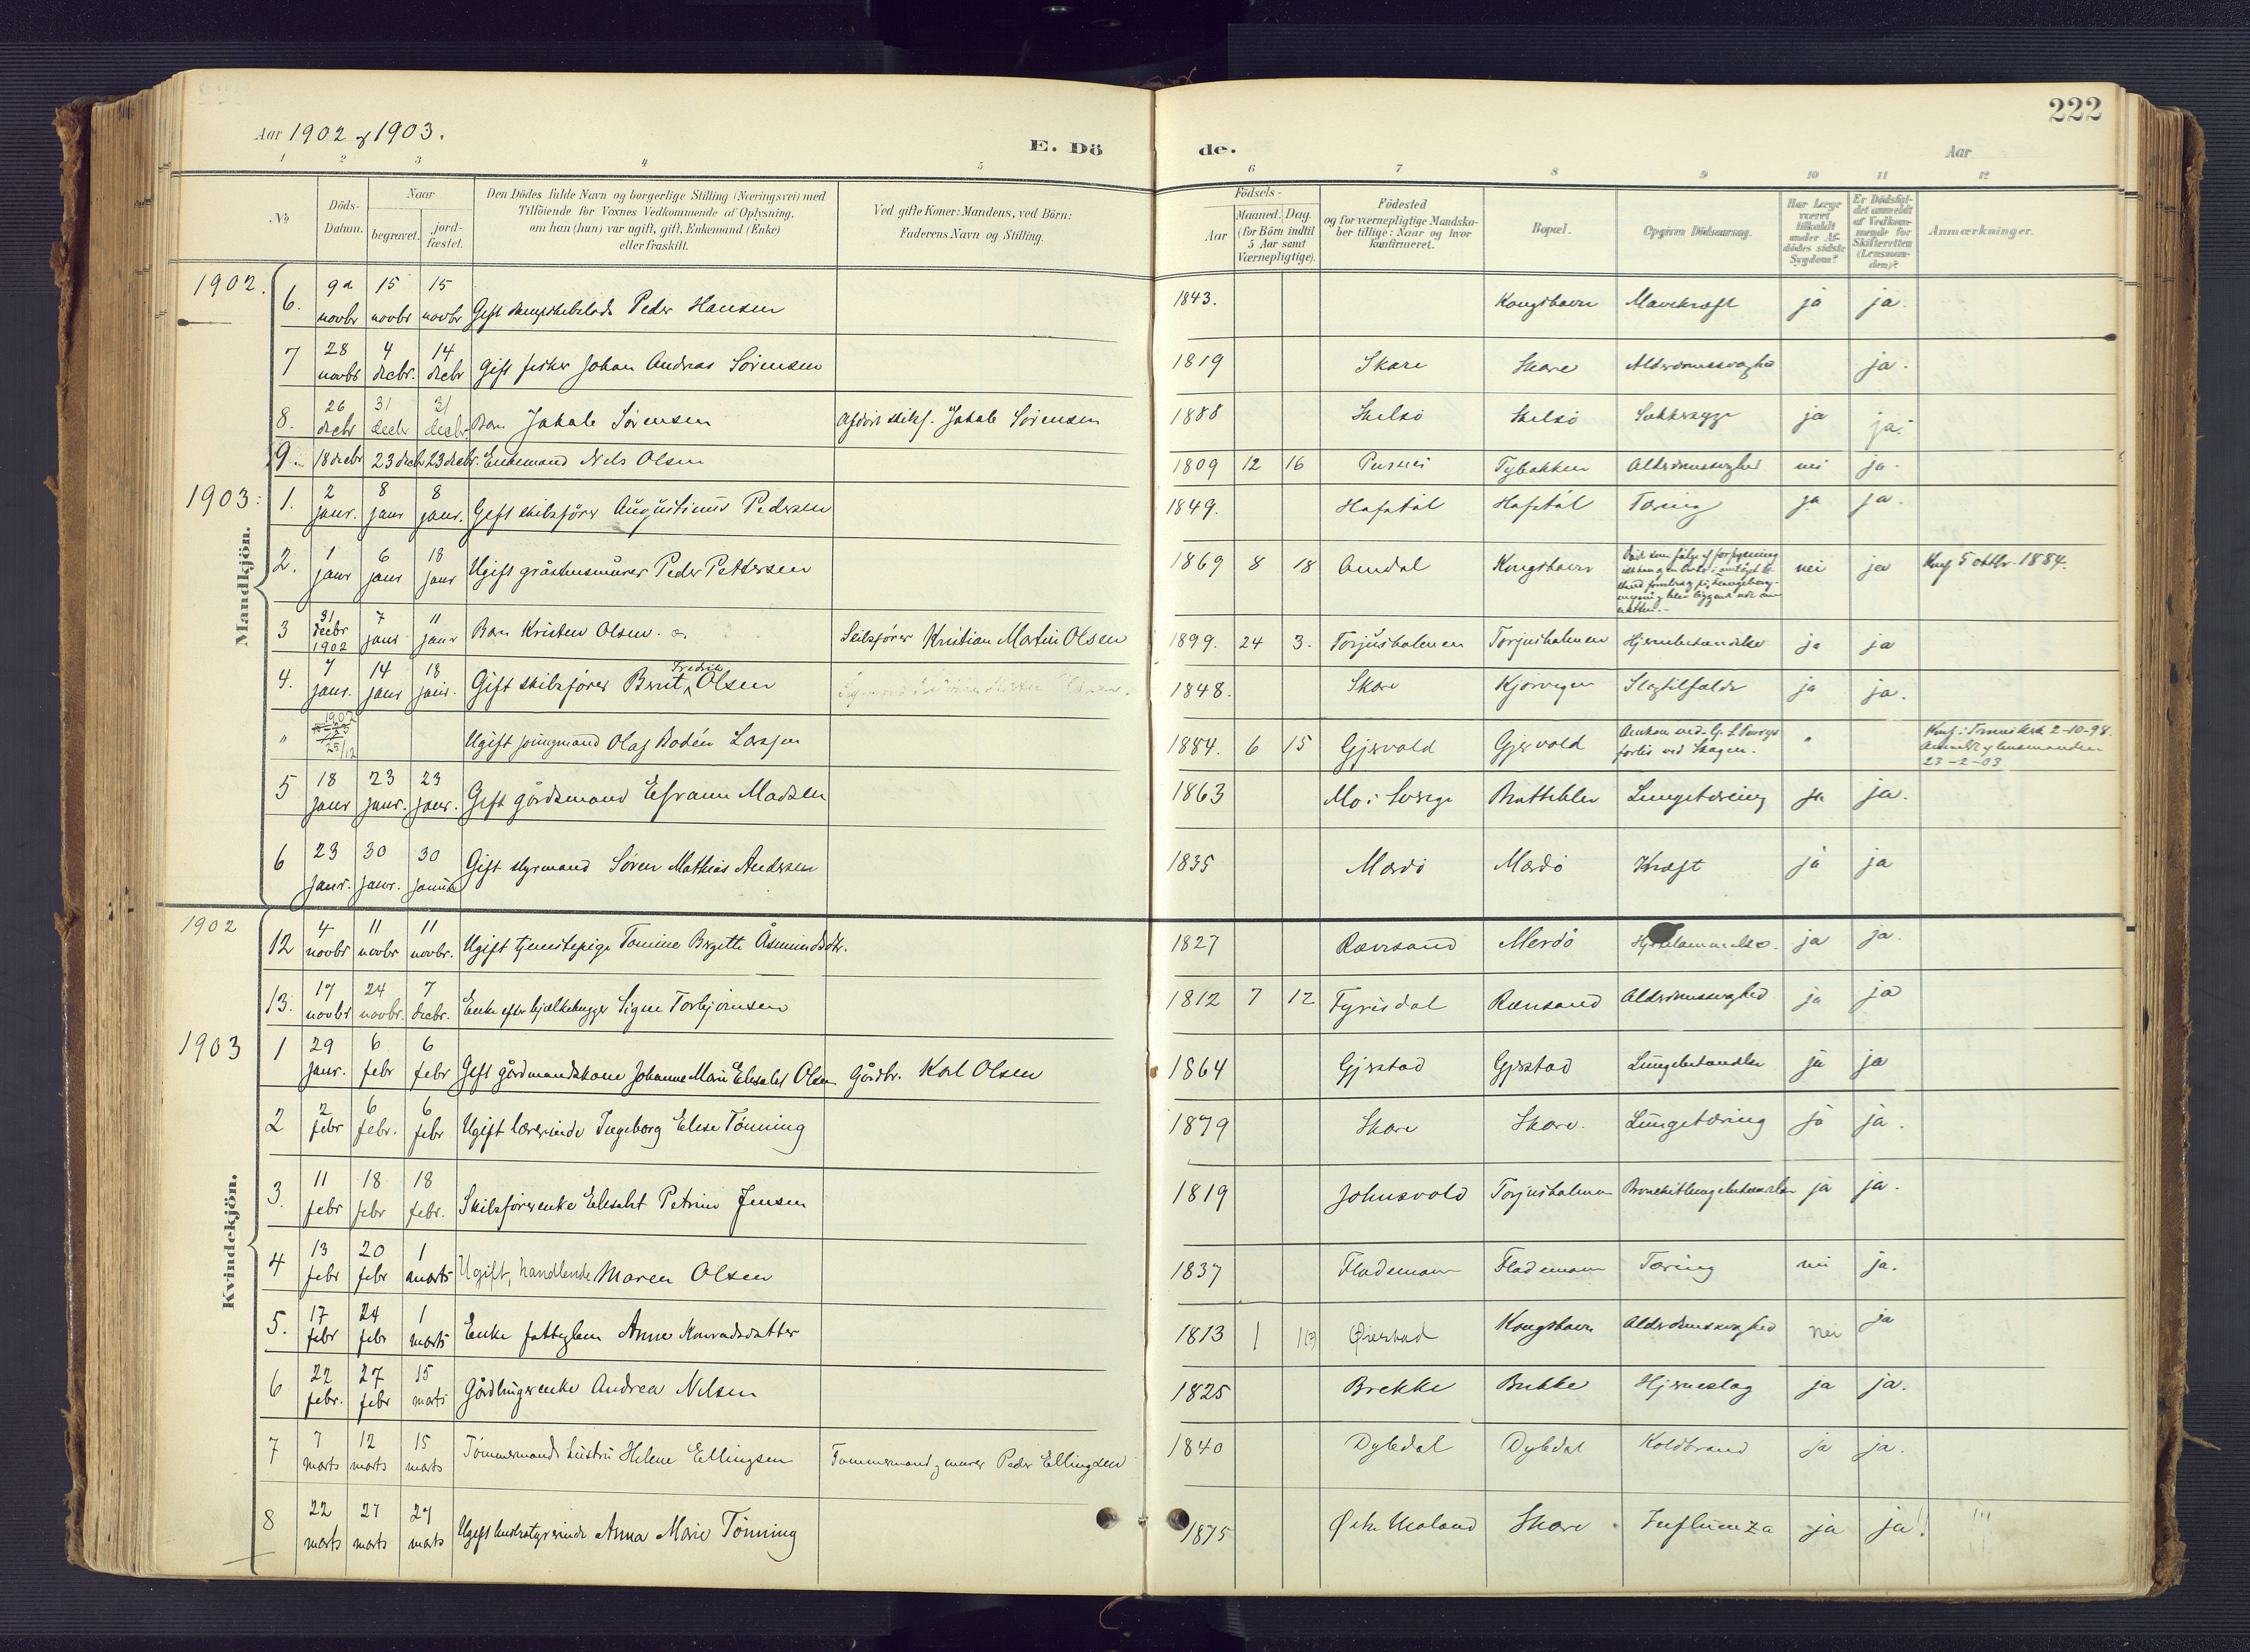 222
Aar 1902 & 1903.
E. Dö de.
Aar
1 2 3 4 5 6 7 8 9 10 11 12
No
Döds-Datum.
Naar
begravet.
jord-fæstet.
Den Dödes fulde Navn og borgerlige Stilling (Næringsvei) med
Tilföiende for Voxnes Vedkommende af Oplysning,
om han (hun) var ugift, gift, Enkemand (Enke)
eller fraskilt.
Ved gifte Koner: Mandens, ved Börn:
Faderens Navn og Stilling.
Födsels-
Aar
Maaned. Dag.
(for Börn indtil
5 Aar samt
Værnepligtige).
Födested
og for værnepligtige Mandska-
ber tillige: Naar og hvor
konfirmeret.
Bopæl.
Opgiven Dödsaarsag.
Har Læge
været
tilkaldt
under Af-
dödes sidste
Sygdom?
Er Dödsfal-
det anmeldt
af Vedkom-
mende for
Skifteretten
(Lensman-
den)?
Anmærkninger.
Mandkjön.
1902.
6. 9 novbr 15 novbr 15 novbr Gift Peder Hansen 1843. Kongshavn Mavekræft ja ja.
7 28 novbr 4 decbr. 14 decbr Gift fisker Johan Andreas Sörensen 1819 Skare Skare Alderdomssvaghed ja.
8. 26 decbr 31 decbr 31 decbr. Barn Jakob Sörensen Afdöd skibsf. Jakob Sörensen 1888 Skilsö Skilsö Sukkersyge ja ja.
9. 18 decbr 23 decbr 23 decbr. Enkemand Nels Olsen 1809 12 16 Pusnes Tybakken Alderdomssvaghed nei ja.
1903:
1. 2 janr. 8 janr 8 janr. Gift skibsförer Augustinus Pedersen 1849. Hafstål Hafstål Tæring ja ja.
2. 1 janr 6 janr 18 janr Ugift gråstensmurer Peder Pettersen 1869 8 18 Arendal Kongshavn Död som fölge af forfrysning nei ja Konf 5 oktbr. 1884.
3 31 decbr 1902 7 janr 11 janr Barn Kristen Olsen. Skibsförer Kristian Martin Olsen 1899. 24 3. Torjusholmen Torjusholmen Hjernebetændelse ja ja
4. 7 janr. 14 janr 18 janr. Gift skibsförer Bernt Fredrik Olsen 1848. Skare Kjörvigen Slagtilfælde ja ja.
" 1902 25/12 Ugift jungmand Olaf Bodén Larsen 1884. 6 15 Gjervold Gjervold forlis ved Skagen. " Konf. i Tromö kirke 2-10-98. Anmeldt af lensmanden 23-2-03
5 18 janr 23 janr. 23 janr. Gift gårdsmand Efraim Madsen 1863 Mo i Sverige Brattekler Lungetæring ja ja.
6 23 janr. 30 janr. 30 januar Gift styrmand Sören Mathias Andersen 1835 Merdö Merdö Kræft ja ja
Kvindekjön.
1902
12 4 novbr 11 novbr 11 novbr. Ugift tjenestepige Tomine Birgitte Åsmundsdtr. 1827 Rævesand Merdö ja ja.
13. 17 novbr 24 novbr. 7 decbr. Enke efter bjælkehugger Signe Torbjörnsen 1812 7 12 Fyrisdal Rævesand Alderdomssvaghed ja ja
1903
1 29 janr. 6 febr 6 febr Gift gårdmandskone Johanne Marie Elisabet Olsen Gårdbr. Karl Olsen 1864 Gjerstad Gjerstad Lungebetændelse ja ja
2 2 febr 6 febr. 6 febr Ugift lærerinde Ingeborg Elise Tönning 1879 Skare Skare. Lungetæring ja ja.
3. 11 febr 18 febr 18 febr. Skibsförerenke Elisabet Petrine Jensen 1819 Johnsvold Torjusholmen ja ja.
4 13 febr 20 febr 1 marts Ugift, handlende Maren Olsen 1837 Flademoen Flademoen Tæring nei ja.
5. 17 febr 24 febr 1 marts Enke fattiglem Anne Konradsdatter 1813 1 1(?) Öiestad Kongshavn Alderdomssvaghed nei ja
6 22 febr. 27 febr 15 marts Gårdbrugerenke Andrea Nilsen 1825 Brekke Brekke Hjerneslag ja ja.
7 7 marts 12 marts 15 marts Tömmermands hustru Helene Ellingsen Tommermand og murer Peder Ellingsen 1840 Dybedal Dybedal Koldbrand ja ja.
8 22 marts 27 marts 27 marts Ugift husbestyrerinde Anna Marie Tönning 1875 Skare Influenza ja ja.